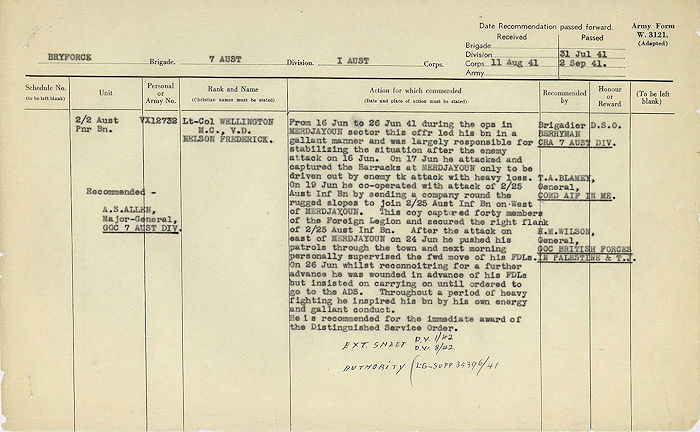 Date Recommendation passed forward.
Army Form
W. 3121.
(Adapted)
Received
Passed
Brigade
BRYFORCE Brigade. 7 AUST Division. I AUST Corps.
Division 31 Jul 41
Corps 11 Aug 41 2 Sep 41.
Army
Schedule No.
(to be left blank)
Unit
Personal or Army No.
Rank and Name
(Christian names must be stated)
Action for which commended
(Date and place of action must be stated)
Recommended by
Honour or Reward
(To be left blank)
2/2 Aust
Pnr Bn.
VX12732
Lt-Col WELLINGTON
M.C., V.D.
NELSON FREDERICK.
Recommended -
A.S.ALLEN,
Major-General,
GOC 7 AUST DIV.
From 16 Jun to 26 Jun 41 during the ops in
MERDJAYOUN sector this offr led his bn in a
gallant manner and was largely responsible for
stabilizing the situation after the enemy
attack on 16 Jun. On 17 Jun he attacked and
captured the Barracks at MERDJAYOUN only to be
driven out by enemy tk attack with heavy loss.
On 19 Jun he co-operated with attack of 2/25
Aust Inf Bn by sending a company round the
rugged slopes to join 2/25 Aust Inf Bn on West
of MERDJAYOUN. This coy captured forty members
of the Foreign Legion and secured the right flank
of 2/25 Aust Inf Bn. After the attack on
east of MERDJAYOUN on 24 Jun he pushed his
patrols through the town and next morning
personally supervised the fwd move of his FDLs.
On 26 Jun whilst reconnoitring for a further
advance he was wounded in advance of his FDLs
but insisted on carrying on until ordered to
go to the ADS. Throughout a period of heavy
fighting he inspired his bn by his own energy
and gallant conduct.
He is recommended for the immediate award of
the Distinguished Service Order.
Brigadier
BERRYMAN
CRA 7 AUST DIV.
T.A.BLAMEY,
General,
COMD AIF IN ME.
H.M.WILSON,
General,
GOC BRITISH FORCES
IN PALESTINE & T.J.
D.S.O.
EXT. SHEET D.V. 1/42
D.V. 3/42
AUTHORITY (LG-SUPP 35396/41